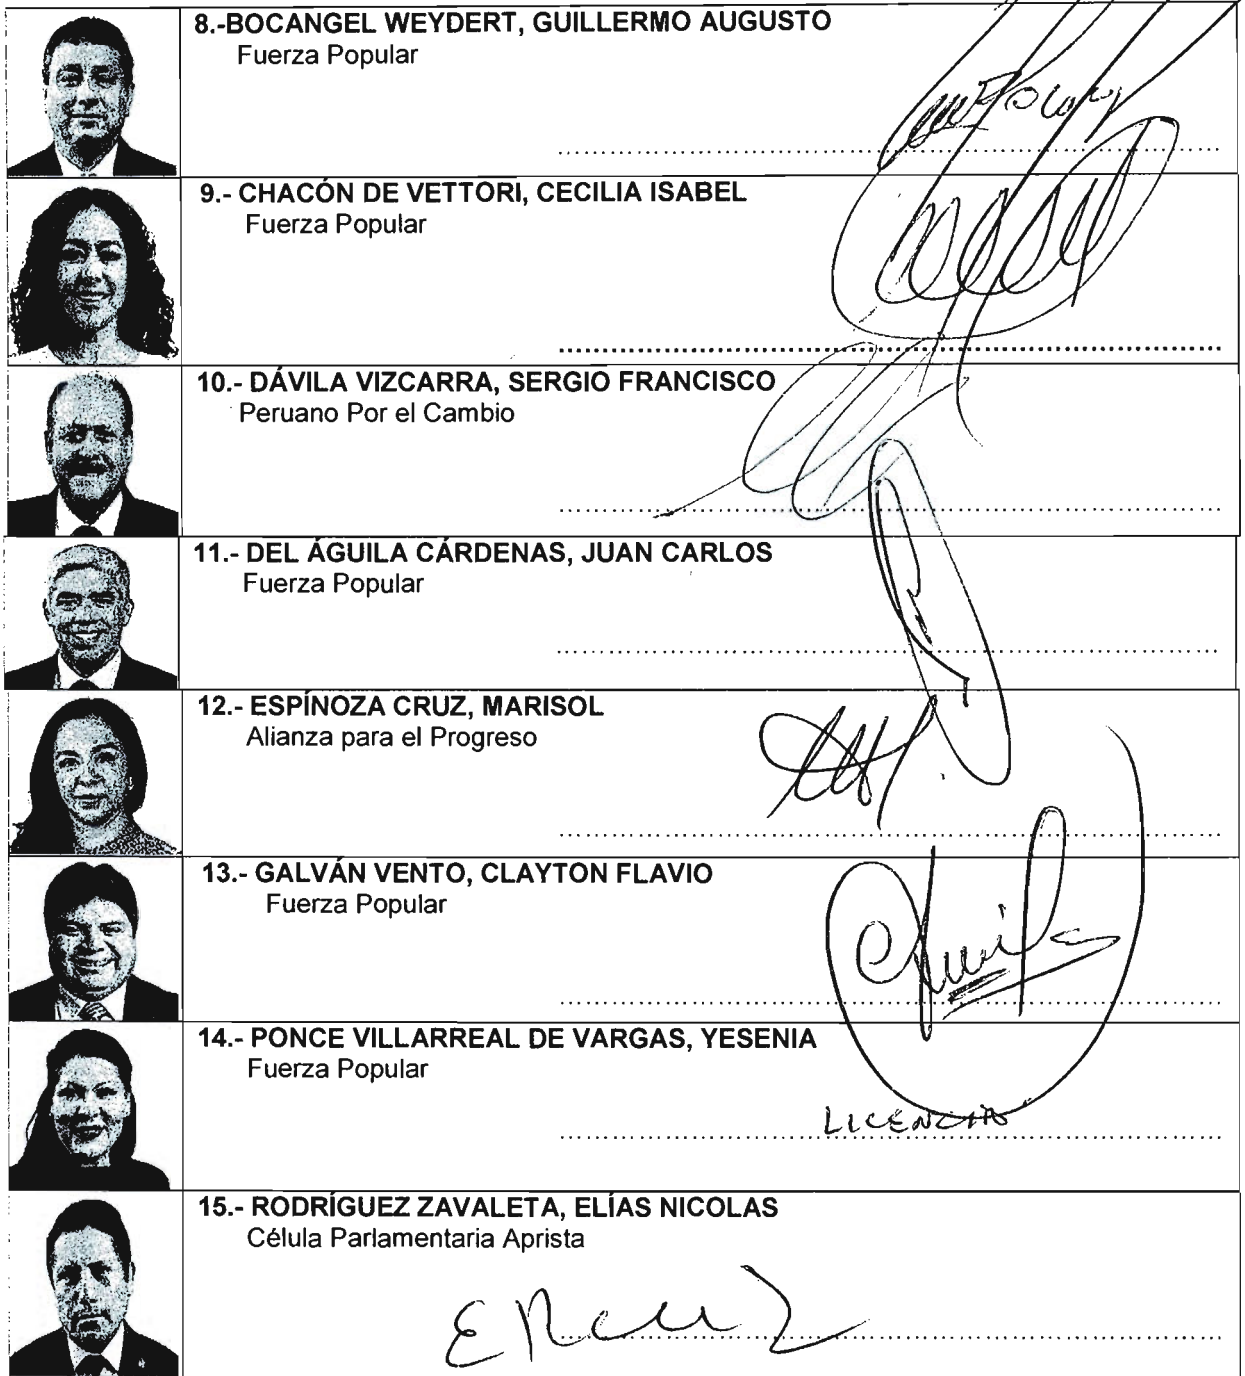 8.-BOCANGEL WEYDERT, GUILLERMO AUGUSTO
Fuerza Popular
9.- CHACÓN DE VETTORI, CECILIA ISABEL
Fuerza Popular
10.- DÁVILA VIZCARRA, SERGIO FRANCISCO
Peruano Por el Cambio
11.- DEL ÁGUILA CÁRDENAS, JUAN CARLOS
Fuerza Popular
12.- ESPÍNOZA CRUZ, MARISOL
Alianza para el Progreso
13.- GALVÁN VENTO, CLAYTON FLAVIO
Fuerza Popular
14.- PONCE VILLARREAL DE VARGAS, YESENIA
Fuerza Popular
LICENCIA
15.- RODRÍGUEZ ZAVALETA, ELÍAS NICOLAS
Célula Parlamentaria Aprista